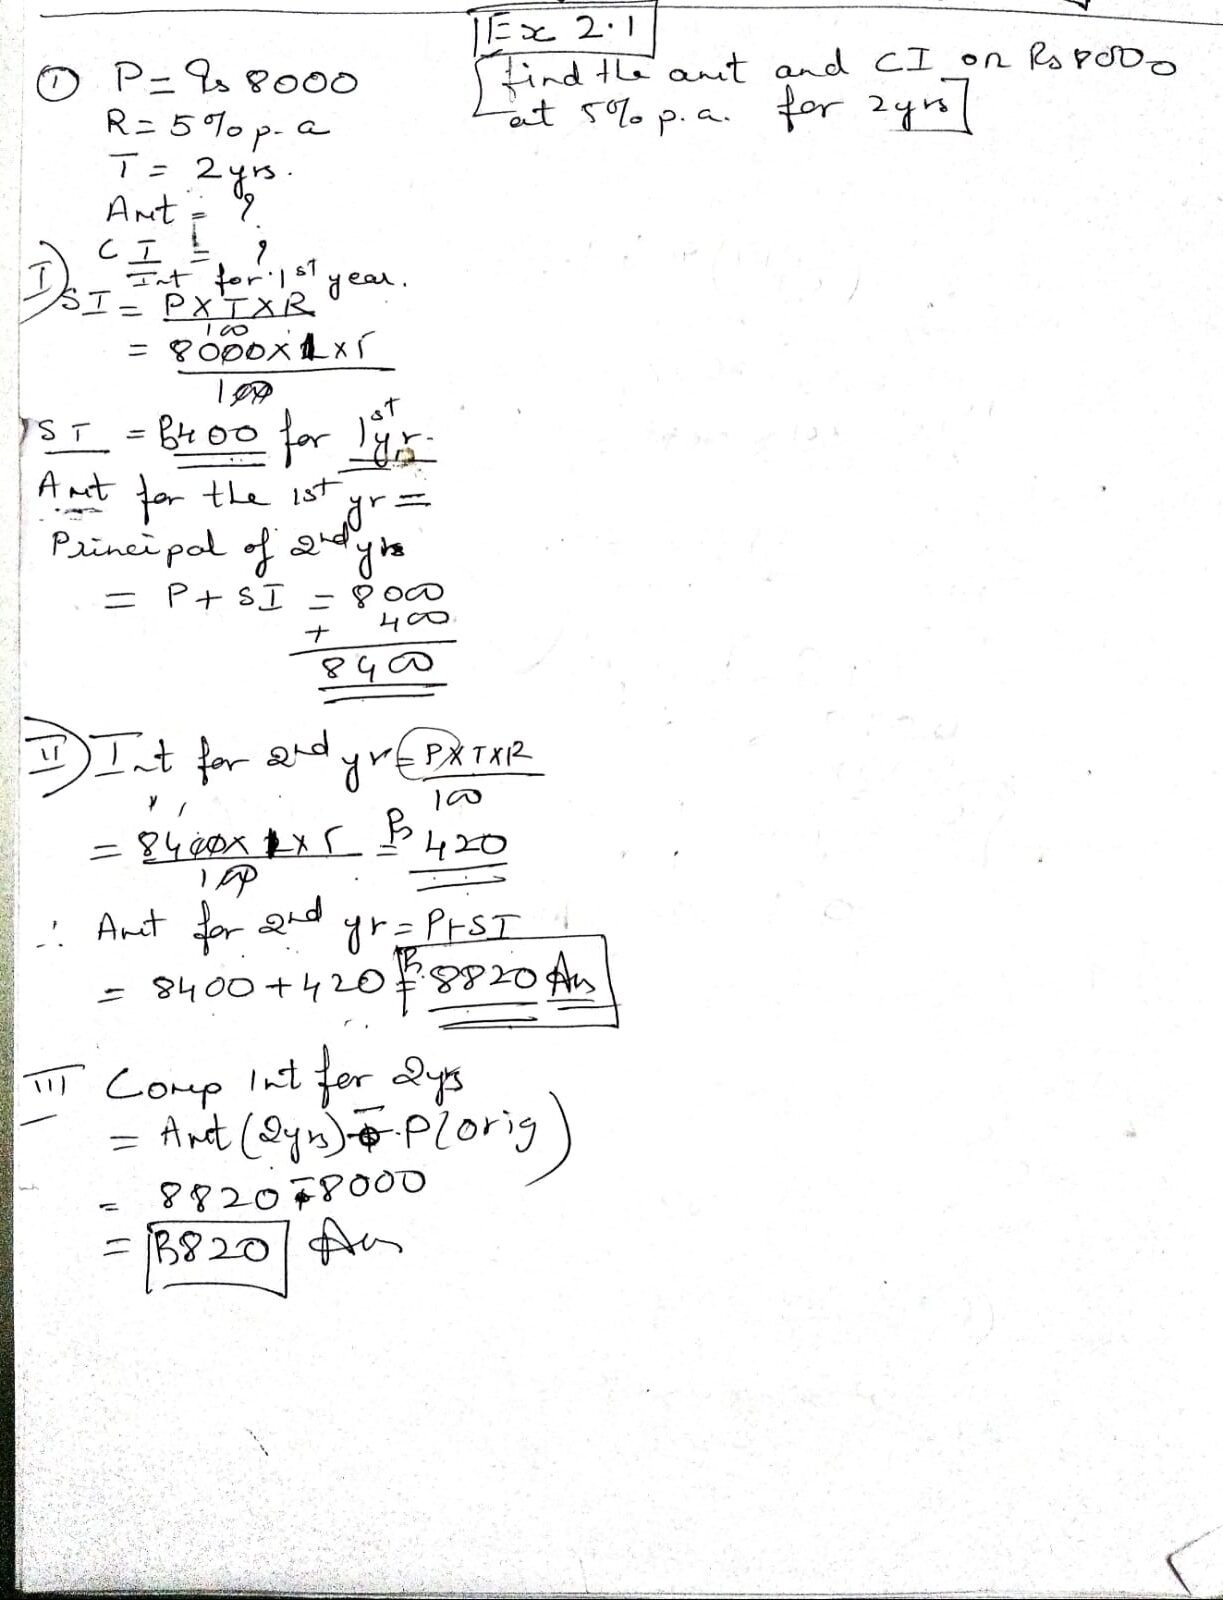 Ex 2.1
[find the amt and CI on Rs 8000
at 5% p.a. for 2yrs]
① P = Rs 8000
R = 5% p.a
T = 2yrs.
Amt = ?
CI = ?
I) Int for 1st year.
SI = P X T X R
100
= 8000 x 1 x 5
100
SI = Rs 400 for 1st yr.
Amt for the 1st yr =
Principal of 2nd yr
= P + SI = 8000
+ 400
8400
II) Int for 2nd yr = P X T X R
100
= 8400 x 1 x 5 = Rs 420
100
∴ Amt for 2nd yr = P + SI
= 8400 + 420 = Rs 8820 Ans
III Comp Int for 2yrs
= Amt (2yrs) - P (orig)
= 8820 - 8000
= Rs 820 Ans